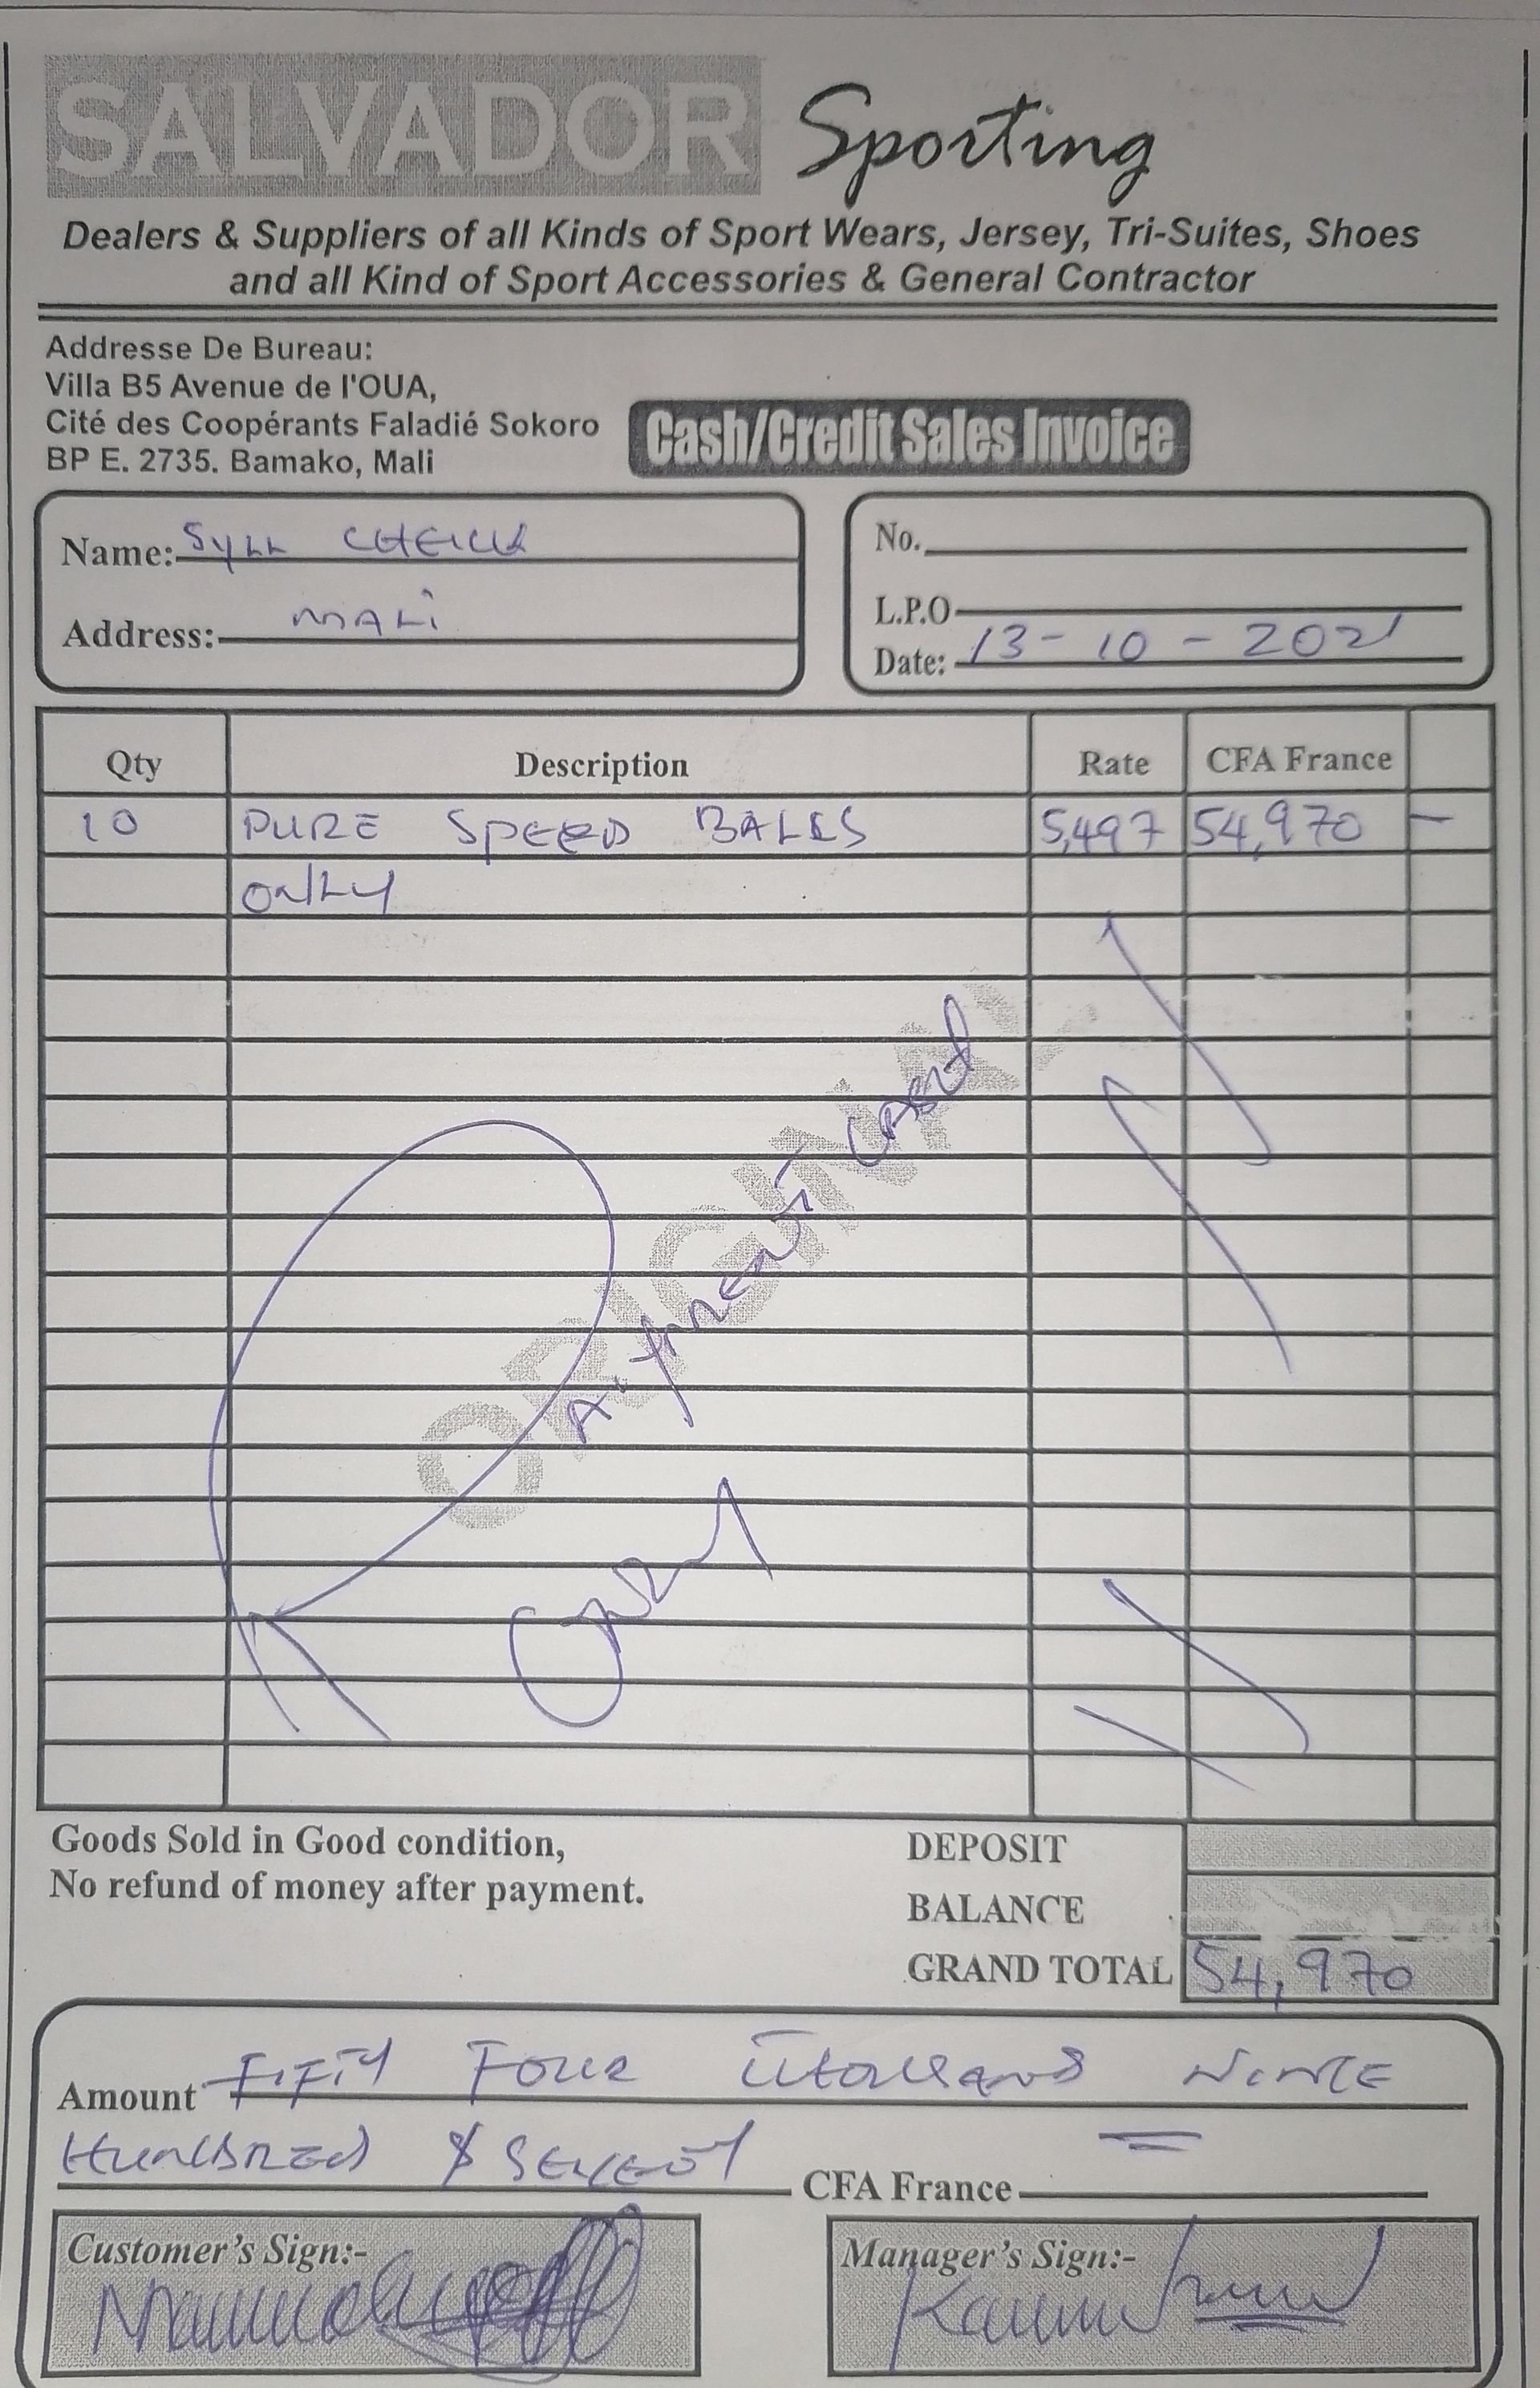 SALVADOR Sporting
Dealers & Suppliers of all Kinds of Sport Wears, Jersey, Tri-Suites, Shoes
and all Kind of Sport Accessories & General Contractor
Addresse De Bureau:
Villa B5 Avenue de l'OUA,
Cité des Coopérants Faladié Sokoro
BP E. 2735. Bamako, Mali
Cash/Credit Sales Invoice
Name: SYLL CHEICK
Address: MALI
No.
L.P.O
Date: 13-10-2021
Qty Description Rate CFA France
10 PURE SPEED BALES 5,497 54,970 -
ONLY
ORIGINAL
CASH
ONLY
Goods Sold in Good condition,
No refund of money after payment.
DEPOSIT
BALANCE
GRAND TOTAL 54,970
Amount FIFTY FOUR THOUSAND NINE
HUNDRED & SEVENTY CFA France
Customer's Sign:-
Manager's Sign:-